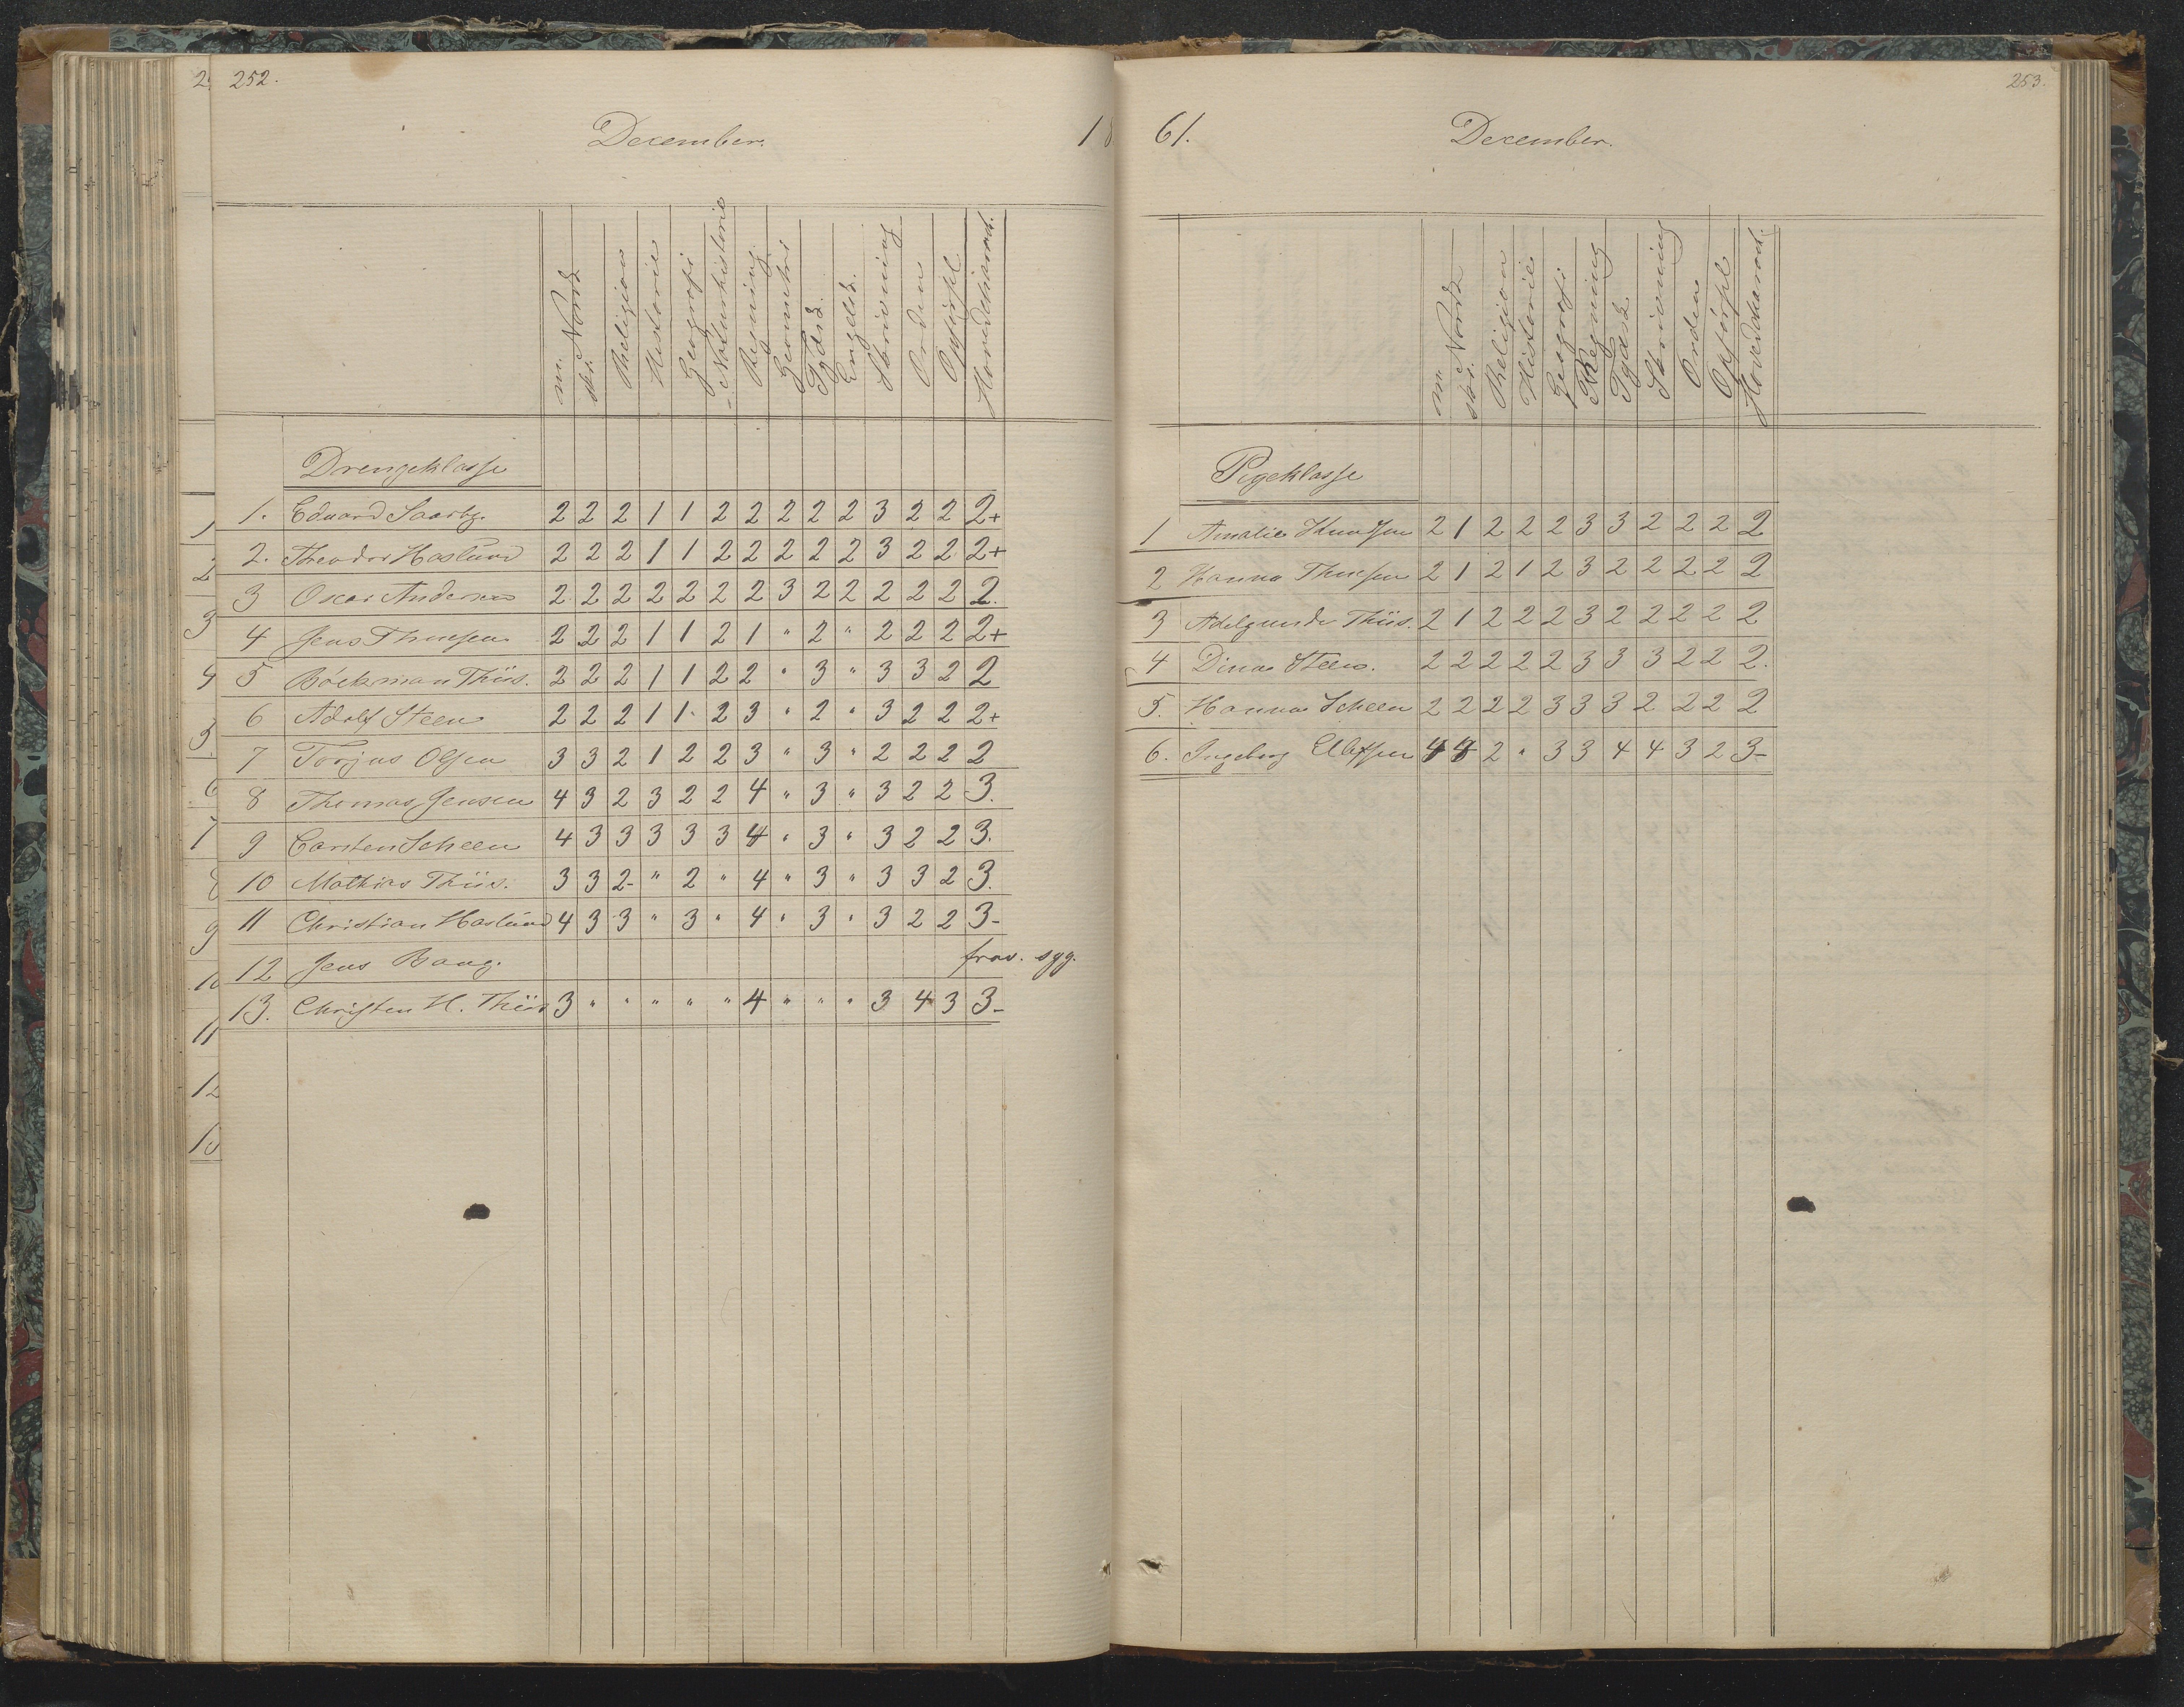 252.
December.
18
m. Norsk
skr.
Religion
Historie
Geografi
Naturhistorie
Regning
Geometri
Tydsk.
Engelsk.
Skrivning
Orden
Opførsel
Hovedcharact.
Drengeklasse
1. Eduard 2 2 2 1 1 2 2 2 2 2 3 2 2 2+
2. Theodor Haslund 2 2 2 1 1 2 2 2 2 2 3 2 2 2+
3 Oscar Andersen 2 2 2 2 2 2 2 3 2 2 2 2 2 2.
4 Jens Thuesen 2 2 2 1 1 2 1 " 2 " 2 2 2 2+
5 Böckman Thiis. 2 2 2 1 1 2 2 " 3 " 3 3 2 2
6 Adolf Steen 2 2 2 1 1 2 3 " 2 " 3 2 2 2+
7 Torjus Olsen 3 3 2 1 2 2 3 " 3 " 2 2 2 2
8 Thomas Jensen 4 3 2 3 2 2 4 " 3 " 3 2 2 3.
9 Carsten Scheen 4 3 3 3 3 3 4 " 3 " 3 2 2 3.
10 Mathias Thiis. 3 3 2- " 2 " 4 " 3 " 3 3 2 3.
11 Christian Haslund 4 3 3 " 3 " 4 " 3 " 3 2 2 3-
12 Jens Bang. frav. syg.
13. Christen H. Thiis 3 " " " " " 4 " " " 3 4 3 3-
253.
61.
December.
m. Norsk
skr.
Religion
Historie
Geografi
Regning
Tydsk
Skrivning
Orden
Opførsel
Hovedcharact.
Pigeklasse
1 Amalie Knudsen 2 1 2 2 2 3 3 2 2 2 2
2 Hanna Thuesen 2 1 2 1 2 3 2 2 2 2 2
3 Adelgunde Thiis. 2 1 2 2 2 3 2 2 2 2 2
4 Dina Steen. 2 2 2 2 2 3 3 3 2 2 2.
5. Hanna Scheen 2 2 2 2 3 3 3 2 2 2 2
6. Ingeborg 4 4 2 " 3 3 4 4 3 2 3-